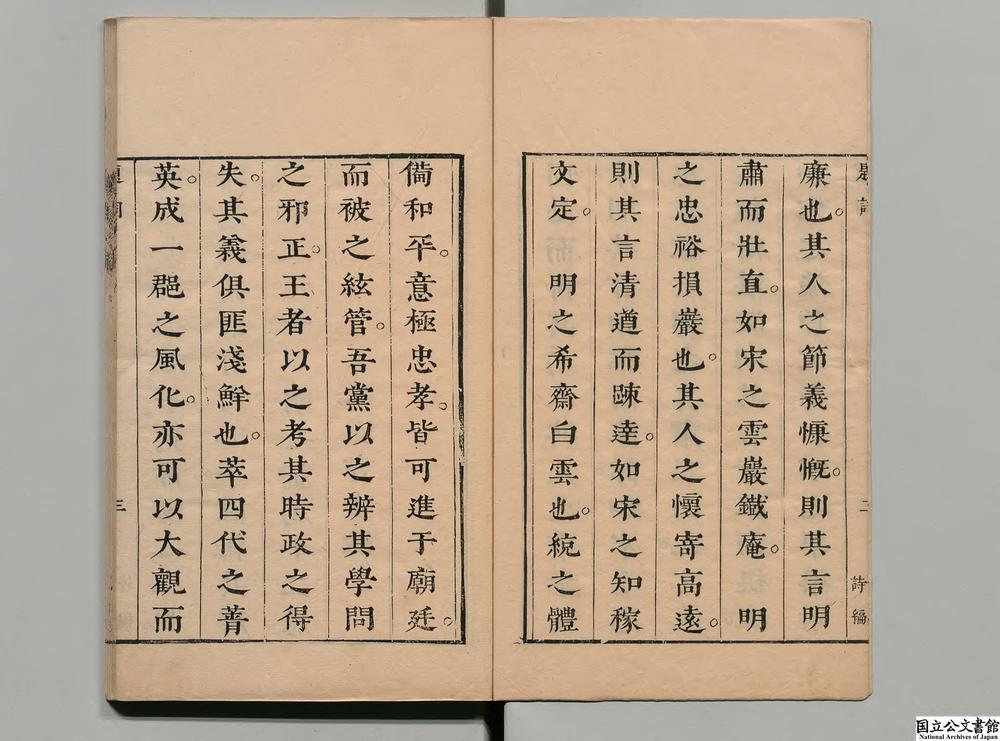 廉也。其人之節義慷慨。則其言明
肅而壯直。如宋之雲巖鐵庵。明
之忠裕損巖也。其人之懷寄高遠。
則其言清遒而疎達。如宋之知稼
文定。明之希齋白雲也。統之體
備和平。意極忠孝。皆可進于廟廷。
而被之絃管。吾黨以之辨其學問
之邪正。王者以之考其時政之得
失。其義俱匪淺鮮也。萃四代之菁
英。成一郡之風化。亦可以大觀而
二
詩編
三
国立公文書館
National Archives of Japan